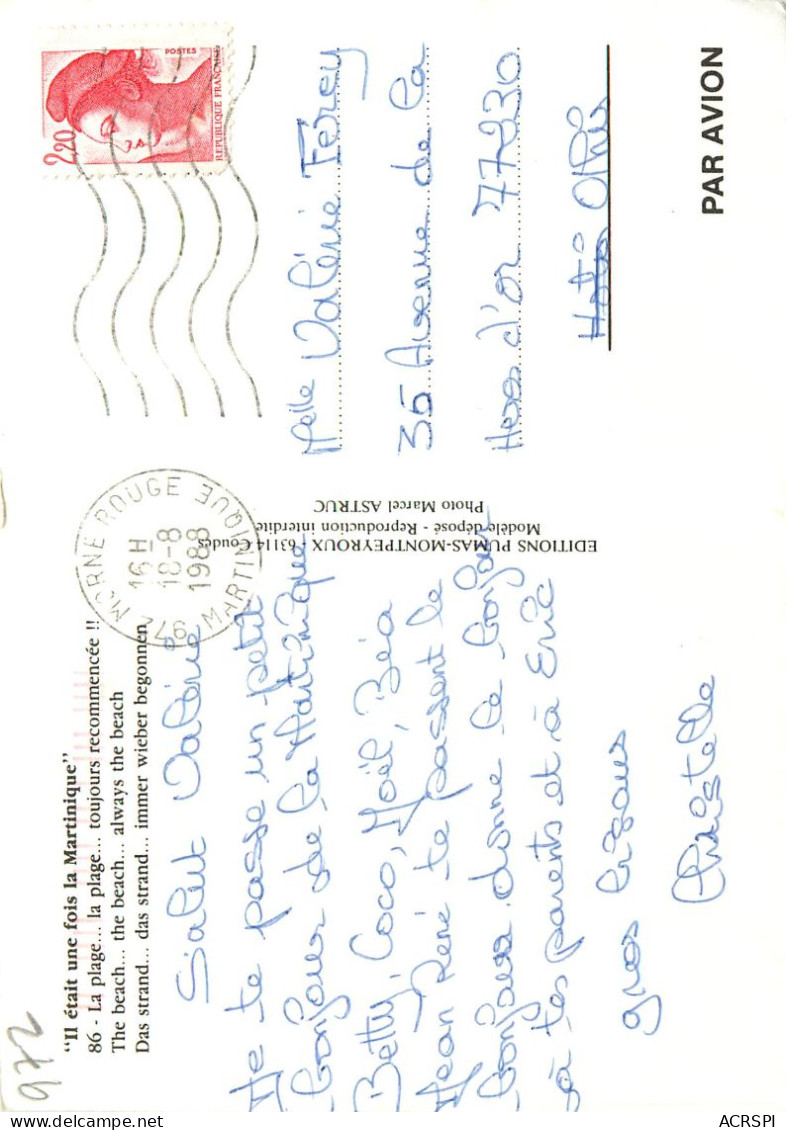 "Il était une fois la Martinique"
86 - La plage... la plage... toujours recommencée !!
The beach... the beach... always the beach
Das strand... das strand... immer wieber begonnen
972
Salut Valérie
Je te passe un petit
bonjour de la Martinique
Betty, Coco, Noël, Béa
Jean René te passent le
bonjour. donne le bonjour
à tes parents et à Eric
gros bisous
Christelle
EDITIONS PUMAS-MONTPEYROUX - 63114 Coudes
Modèle déposé - Reproduction interdite
Photo Marcel ASTRUC
MORNE ROUGE
16H
18-8
1988
976 MARTINIQUE
2,20
POSTES
REPUBLIQUE FRANCAISE
Melle Valérie Ferey
35 Avenue de la
Hess d'or 77230
Othis
PAR AVION
ACRSPI